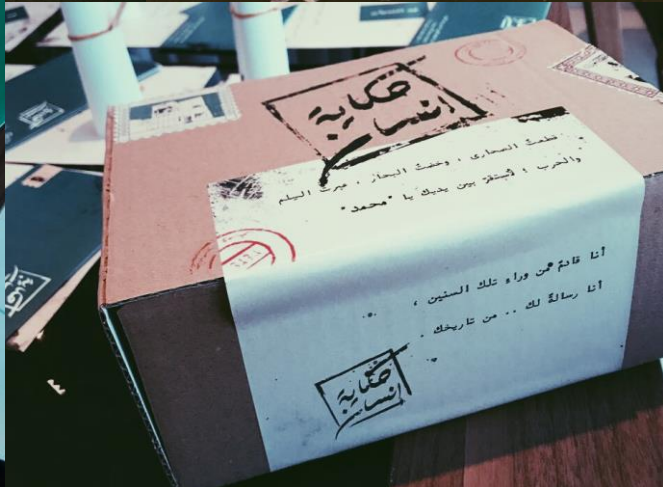 حكاية
إنسان
قطعتُ الصحاري ، وخضتُ البحار ، عبرت السِلم
والحرب ؛ لأستقرّ بين يديك يا "محمد"
أنا قادمٌ من وراء تلك السنين ،
أنا رسالةٌ لك .. من تاريخك .
حكاية
إنسان